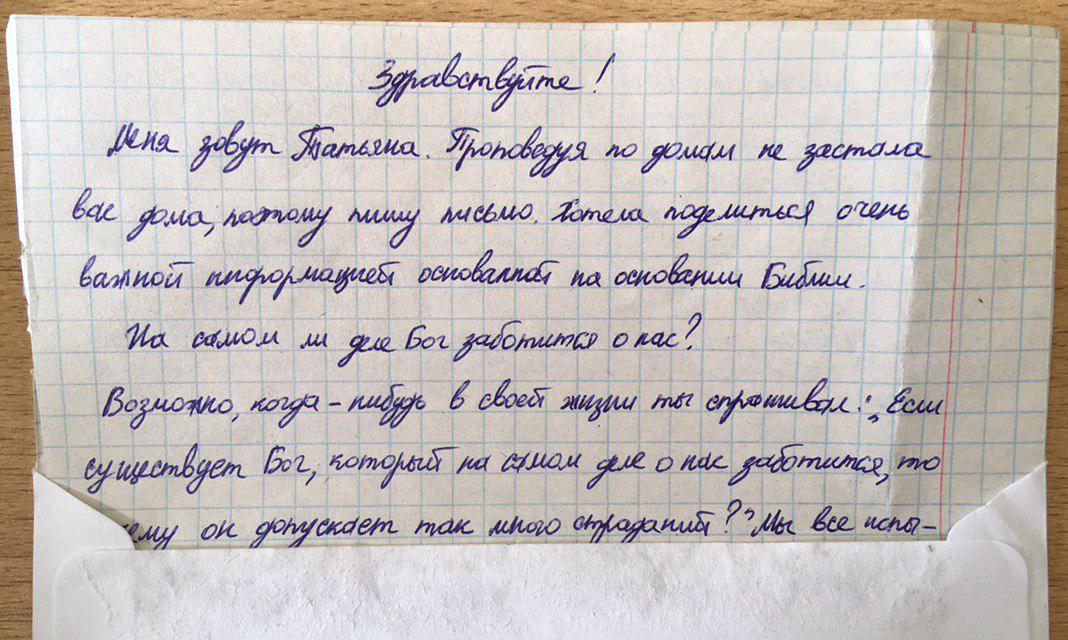 Здравствуйте!
Меня зовут Татьяна. Проповедуя по домам не застала
вас дома, поэтому пишу письмо. Хотела поделиться очень
важной информацией основанной на основании Библии.
На самом ли деле Бог заботится о нас?
Возможно, когда-нибудь в своей жизни ты спрашивал: „Если
существует Бог, который на самом деле о нас заботится, то
он допускает так много страданий?" Мы все испы-